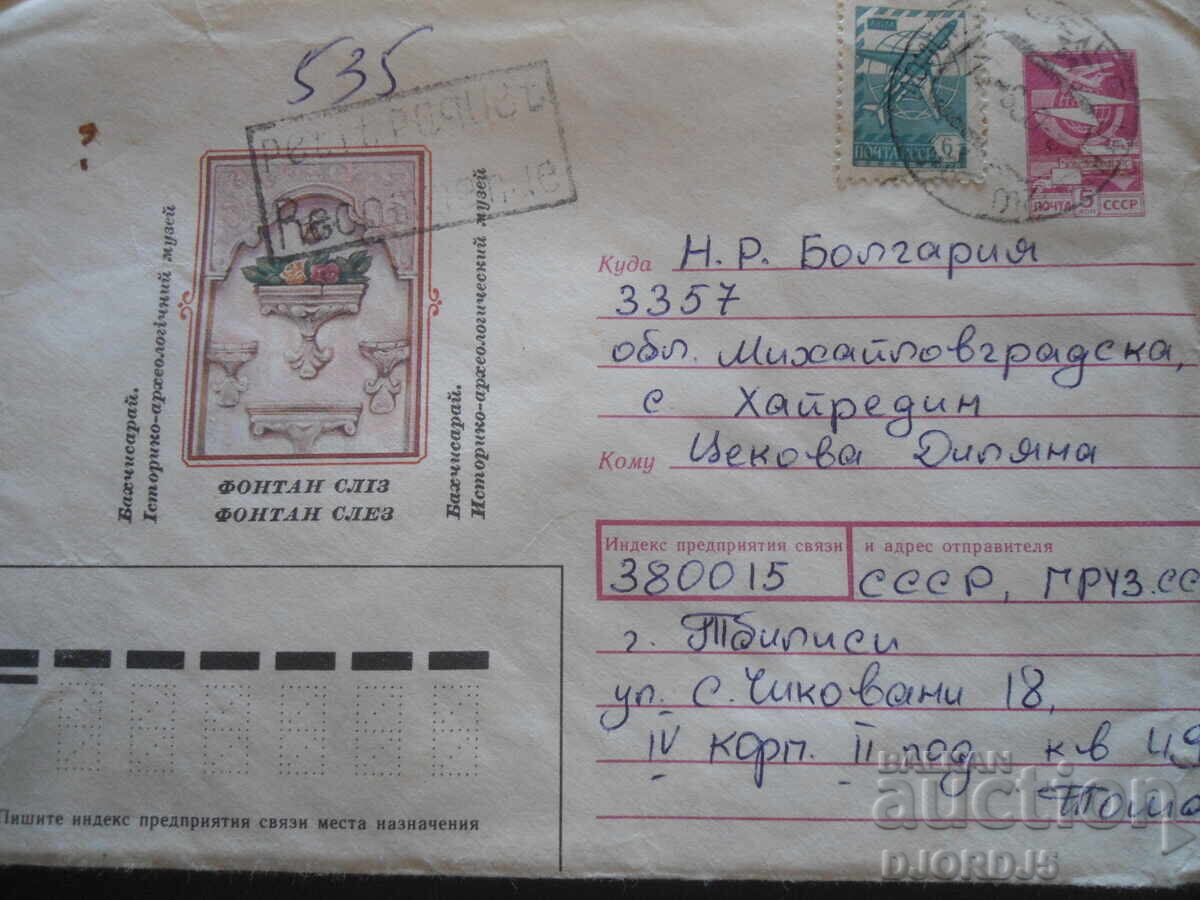 535
Recommande
АВИА
ПОЧТА СССР 6
ПОЧТА 5 СССР
Бахчисарай.
Історико-археологічний музей
Бахчисарай.
Историко-археологический музей
ФОНТАН СЛІЗ
ФОНТАН СЛЕЗ
Куда Н.Р. Болгария
3357
обл. Михайловградска,
с. Хайредин
Кому Цекова Диляна
Индекс предприятия связи и адрес отправителя
380015 СССР, груз.сс
г. Тбилиси
ул. С. Чиковани 18,
IV корп. II под. кв 49
Пишите индекс предприятия связи места назначения
BALKAN
auction
DJORDJ5